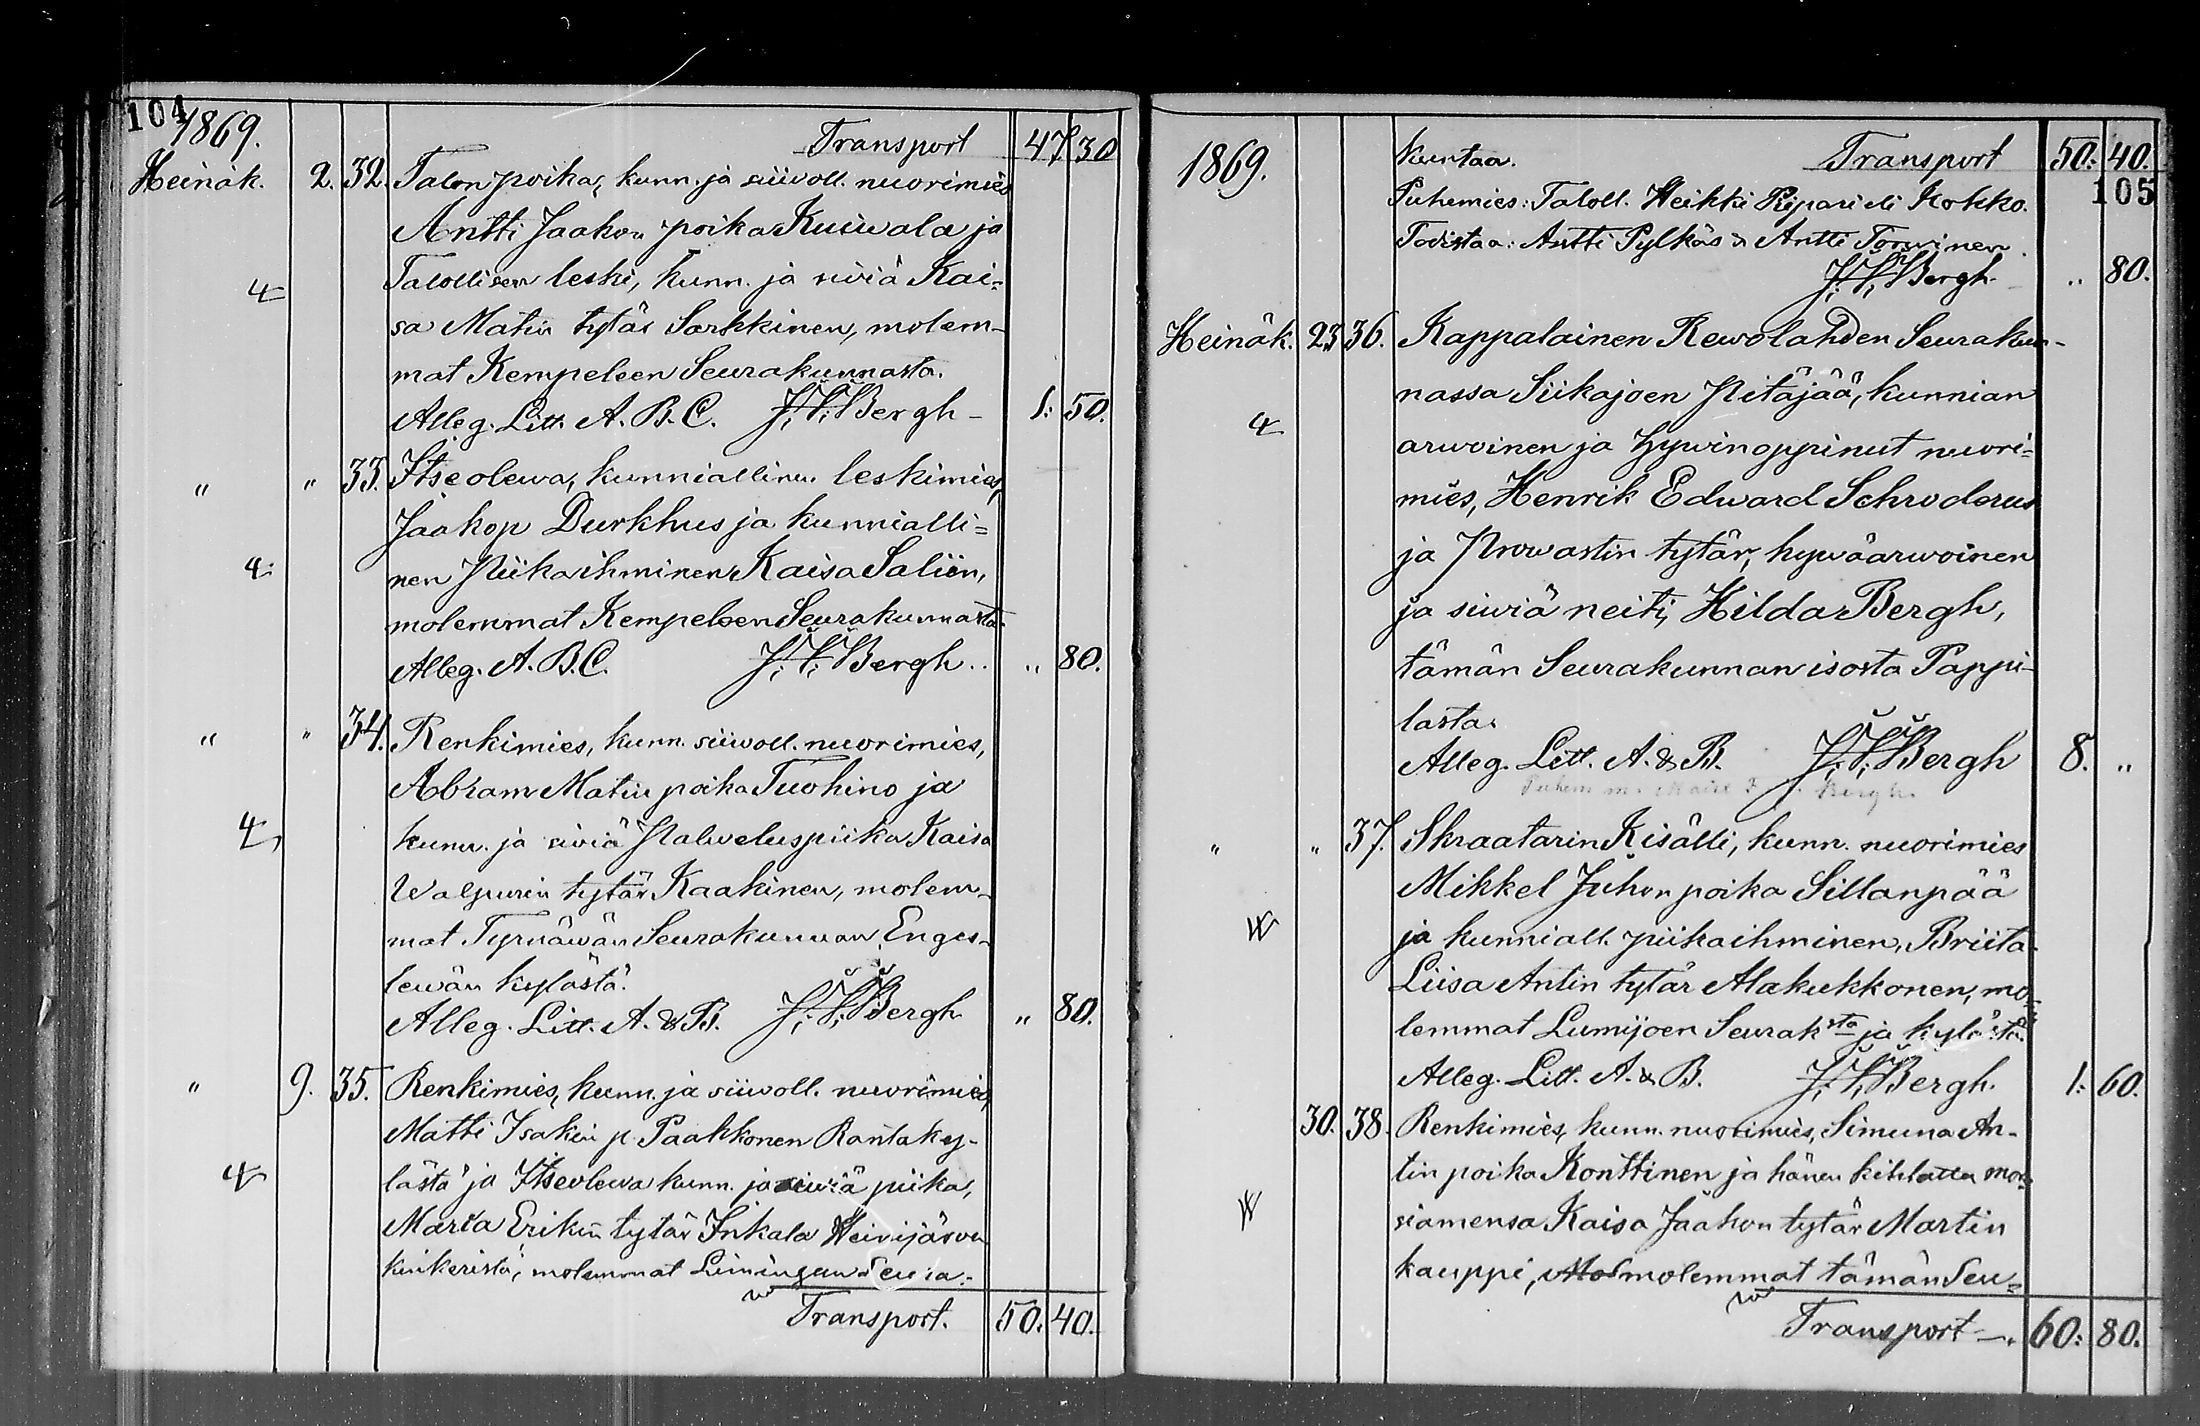 104
1869.
Transport 47 30
Heinäk. 2. 32. Talon poika, kunn. ja siivoll. nuorimies
Antti Jaakon poika Kuiwala ja
4 Talollisen leski, kunn. ja siviä Kai-
sa Matin tytär Sarkkinen, molem-
mat Kempeleen Seurakunnasta.
Alleg. Litt. A. B. C. J. V. Bergh 1: 50.
" " 33. Itseolewa, kunniallinen leskimies,
Jaakop Durkhus ja kunnialli=
4: nen Piikaihminen Kaisa Salién,
molemmat Kempeleen Seurakunnasta.
Alleg. A. B. C. J. V. Bergh .. " 80.
" " 34. Renkimies, kunn. siiwoll. nuorimies,
Abram Matin poika Tuohino ja
4, kunn. ja siviä Palweluspiika Kaisa
Walpurin tytär Kaakinen, molem-
mat Tyrnäwän Seurakunnan Enges-
lewän kylästä.
Alleg. Litt. A. & B. J. V. Bergh " 80.
" 9. 35. Renkimies, kunn. ja siiwoll. nuorimies,
Matti Isakin p. Paakkonen Rantaky-
4 lästä ja Itseolewa kunn. ja siwiä piika,
Maria Erikin tytär Inkala Hirvijärven
kinkeristä, molemmat Limingan Seura-
Transport. 50. 40.
1869.
kuntaa. Transport 50: 40.
105
Puhemies: Taloll. Heikki Ripari eli Kokko.
Todistaa: Antti Pylkäs & Antti Torwinen.
J. V. Bergh " 80.
Heinäk. 23 36. Kappalainen Rewolahden Seurakun-
nassa Siikajoen Pitäjää, kunnian
4 arwoinen ja Hywinoppinut nuori=
mies, Henrik Edward Schroderus
ja Prowastin tytär, hywäarwoinen
ja siwiä neiti, Hilda Bergh,
tämän Seurakunnan isosta Pappi-
lasta.
Alleg. Litt. A. & B. J. V. Bergh 8. "
" " 37. Skraatarin Kisälli, kunn. nuorimies
Mikkel Juhon poika Sillanpää
ja kunniall. piikaihminen, Briita
Liisa Antin tytär Alakukkonen, mo-
lemmat Lumijoen Seurak:sta ja kylästä.
Alleg. Litt. A. & B. J. V. Bergh. 1: 60.
30. 38. Renkimies, kunn. nuorimies, Simuna An-
tin poika Konttinen ja hänen kihlattu mor-
siamensa Kaisa Jaakon tytär Martin
kauppi, Mol molemmat tämän Seu=
Transport 60: 80.